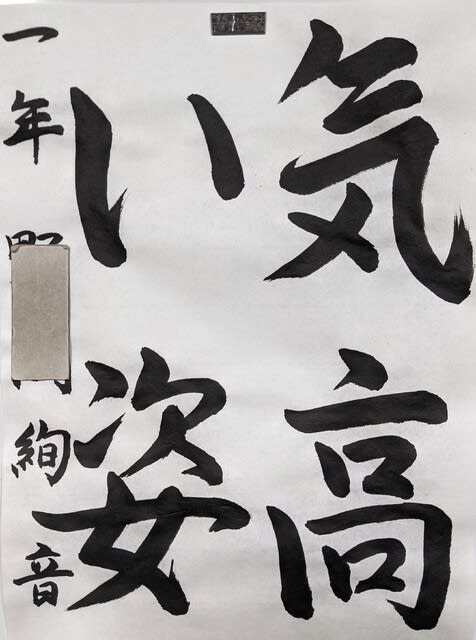 気高
い姿
一年
絢音